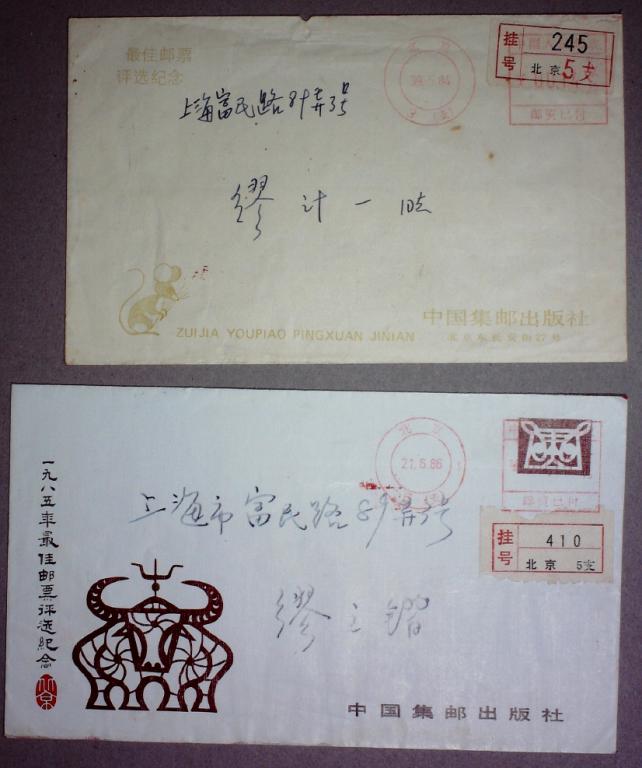 最佳邮票
评选纪念
北京
挂号
245
北京 5支
邮资已付
上海富民路89弄3号
缪计一
ZUIJIA YOUPIAO PINGXUAN JINIAN
中国集邮出版社
北京东长安街27号
一九八五年最佳邮票评选纪念
北京
21.5.86
邮资已付
挂号
410
北京 5支
上海市富民路89弄3号
缪
中国集邮出版社